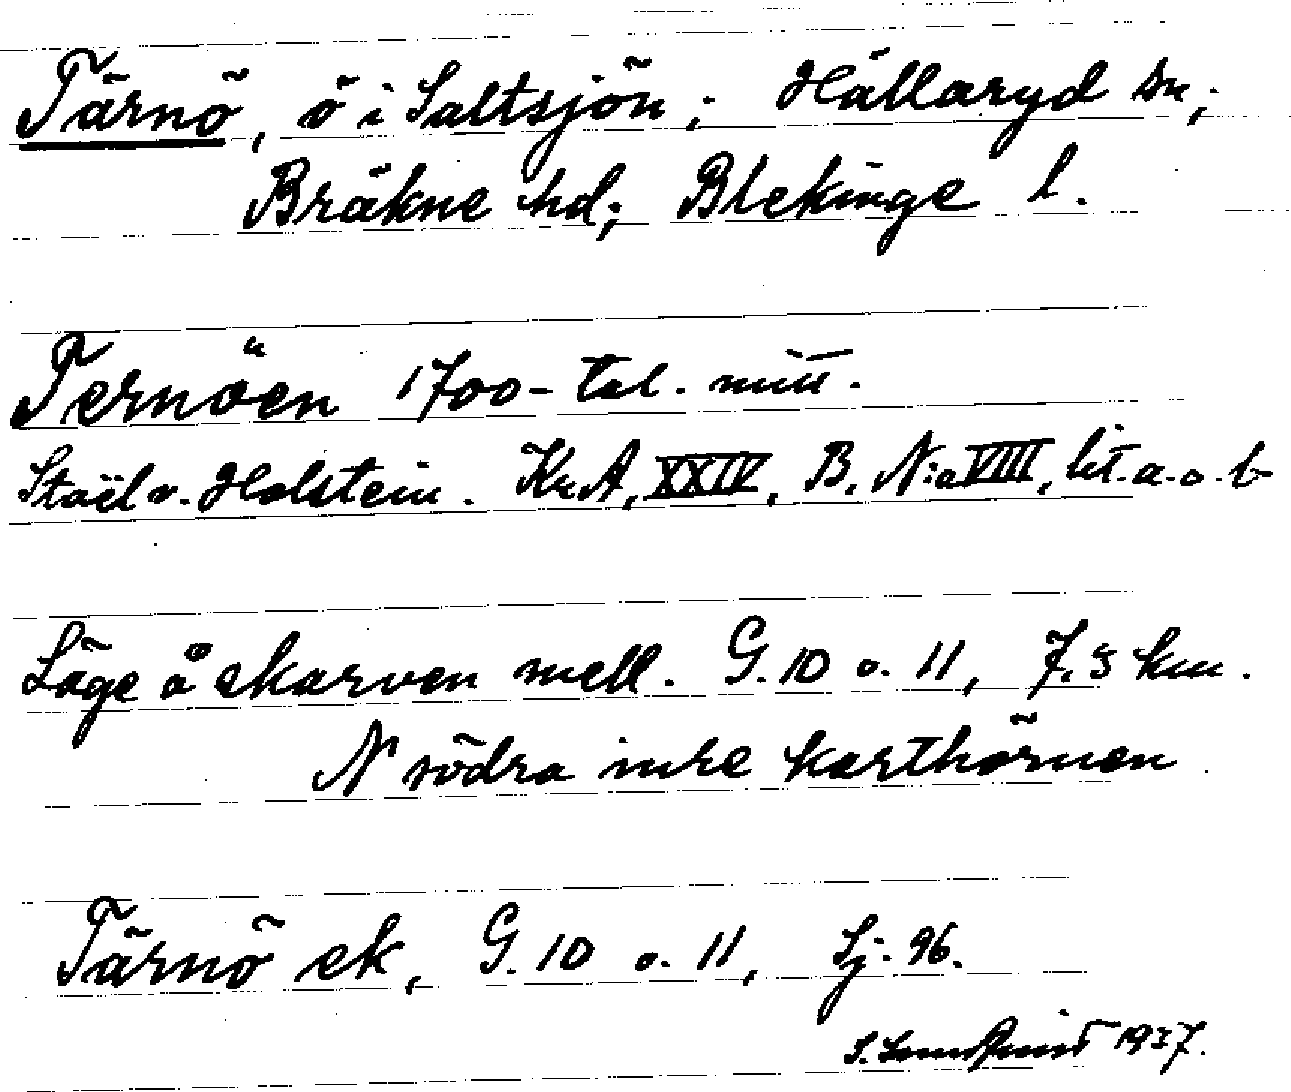 Tärnö, ö i Saltsjön; Hällaryd sn;
Bräkne hd; Blekinge l.
Ternöen 1700-tal. mitt.
Staël v. Holstein. Kr.A, XXIV, B. N:o VIII, lit. a. o. b
Läge å skarven mell. G. 10 o. 11, 7,5 km.
N södra inre karthörnen
Tärnö ek, G. 10 o. 11, Sj. 96.
1937.